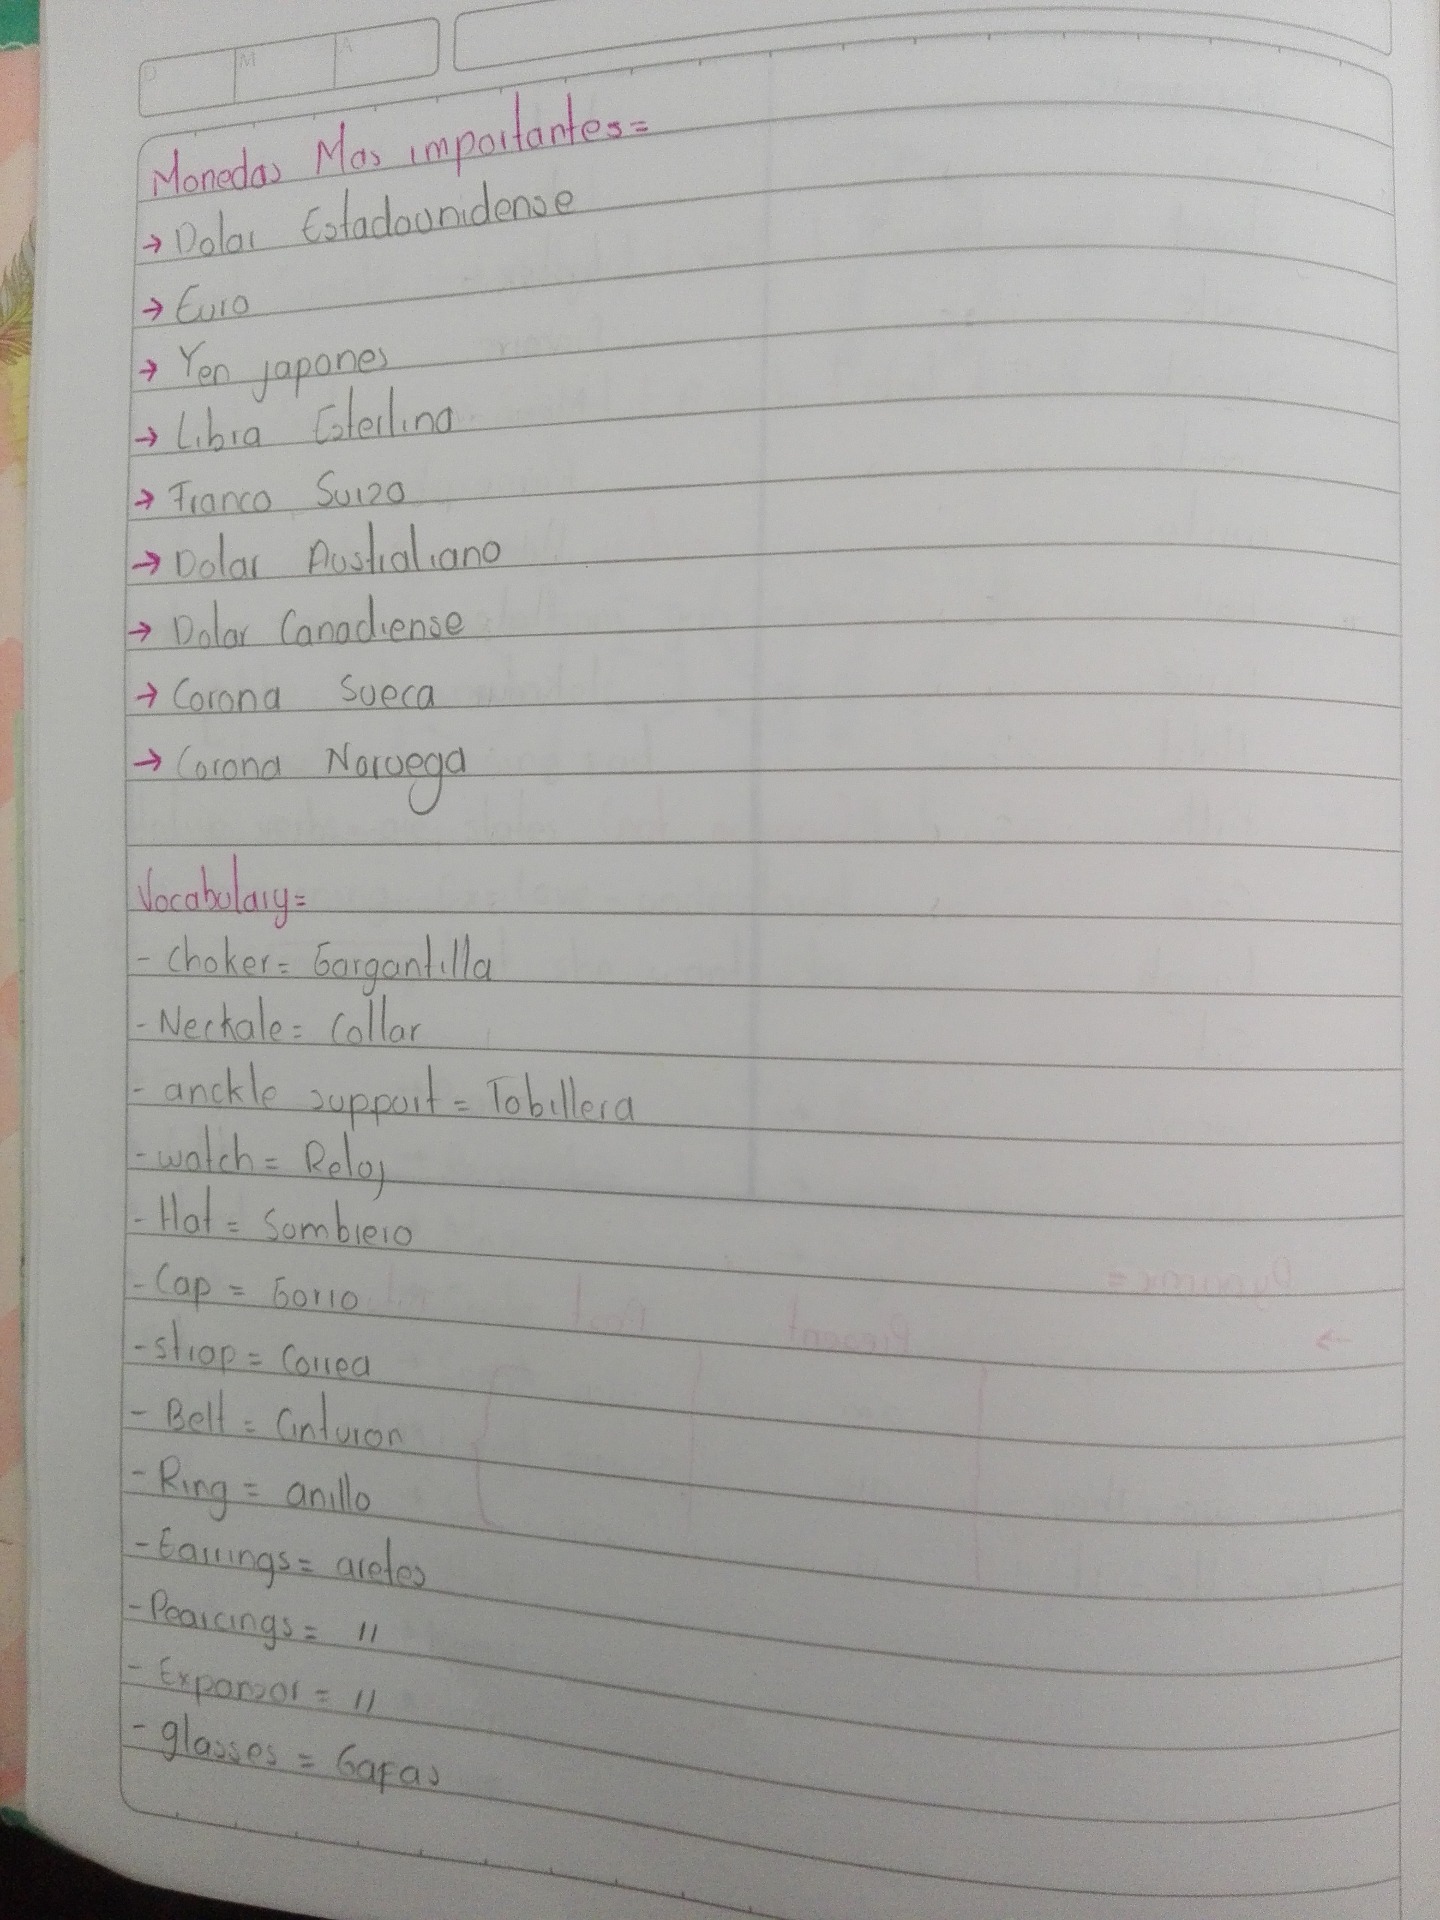 D M A
Monedas Mas importantes=
→ Dolar Estadounidense
→ Euro
→ Yen japones
→ Libra Esterlina
→ Franco Suizo
→ Dolar Australiano
→ Dolar Canadiense
→ Corona Sueca
→ Corona Noruega
Vocabulary=
- Choker= Gargantilla
- Neckale= Collar
- anckle support= Tobillera
- watch= Reloj
- Hat= Sombrero
- Cap= Gorro
- strap= Correa
- Belt= Cinturon
- Ring= anillo
- Earrings= aretes
- Pearcings= //
- Expansor= //
- glasses= Gafas